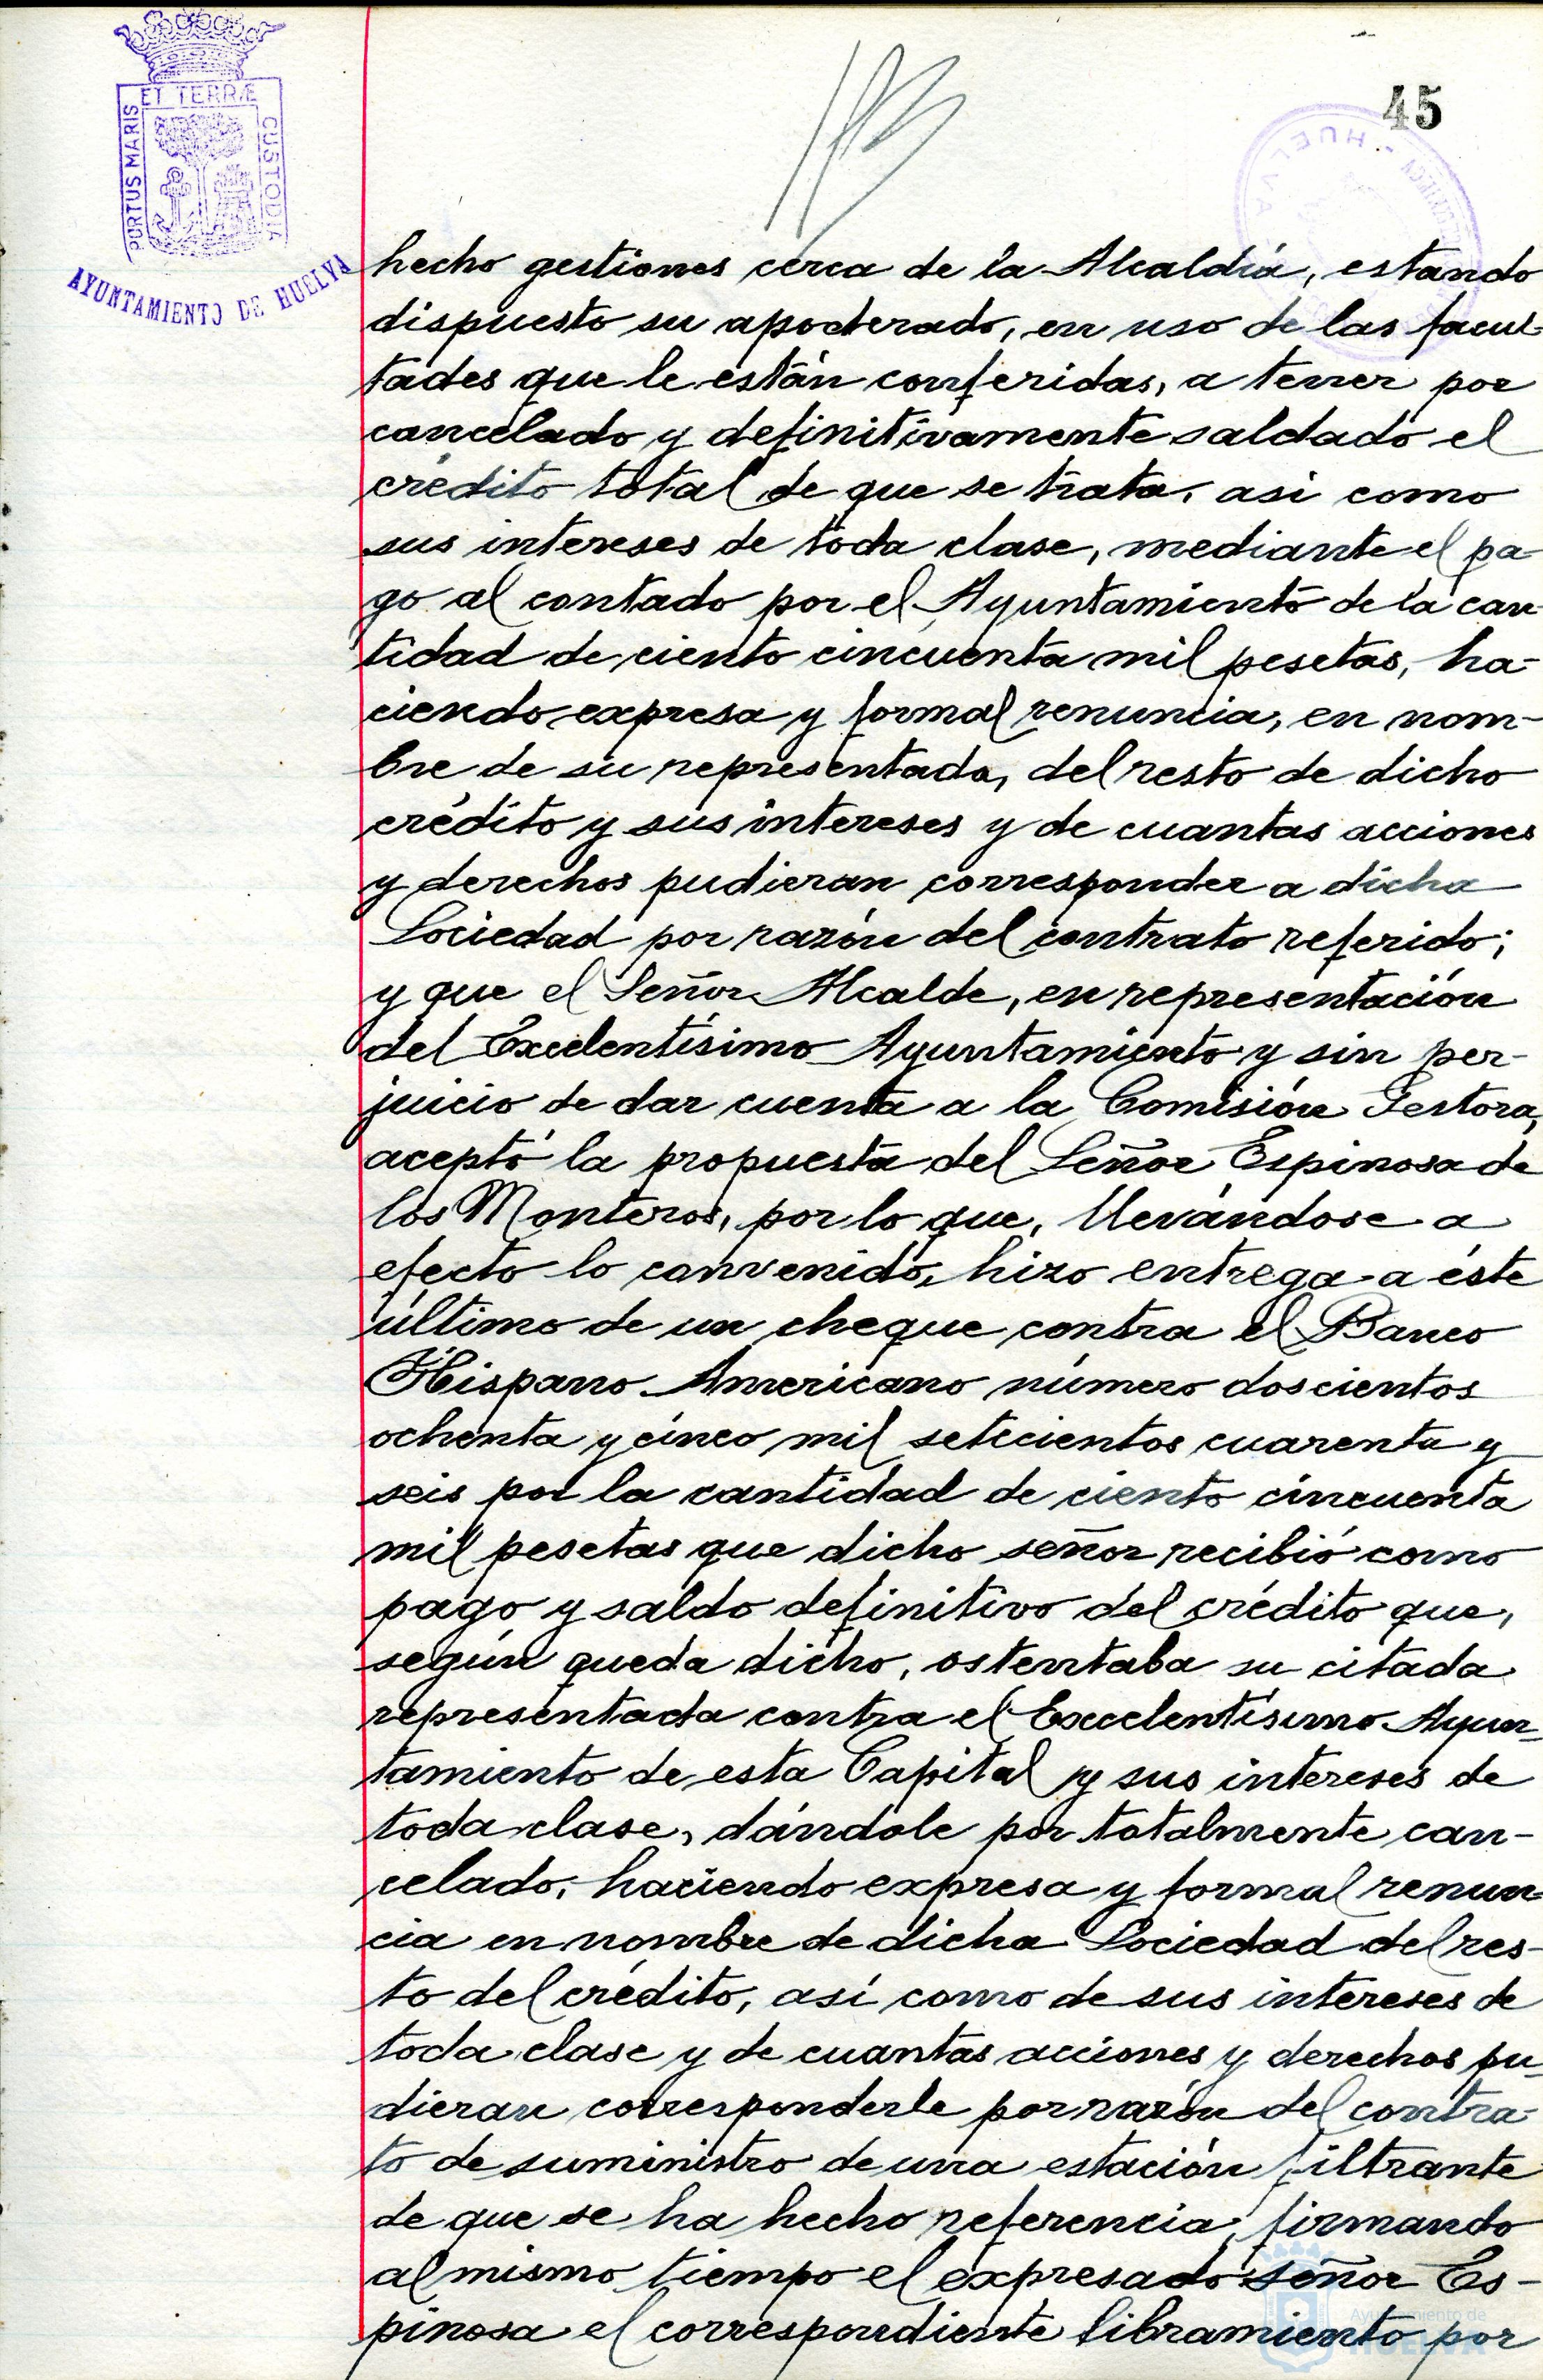 ET TERRÆ
PORTUS MARIS
CUSTODIA
AYUNTAMIENTO DE HUELVA
45
HUELVA
hecho gestiones cerca de la Alcaldía, estando
dispuesto su apoderado, en uso de las facul-
tades que le están conferidas, a tener por
cancelado y definitivamente saldado el
crédito total de que se trata, asi como
sus intereses de toda clase, mediante el pa-
go al contado por el Ayuntamiento de la can-
tidad de ciento cincuenta mil pesetas, ha-
ciendo expresa y formal renuncia, en nom-
bre de su representada, del resto de dicho
crédito y sus intereses y de cuantas acciones
y derechos pudieran corresponder a dicha
Sociedad por razón del contrato referido;
y que el Señor Alcalde, en representación
del Excelentísimo Ayuntamiento y sin per-
juicio de dar cuenta a la Comisión Gestora,
aceptó la propuesta del Señor Espinosa de
los Monteros, por lo que, llevándose a
efecto lo convenido, hizo entrega a éste
último de un cheque contra el Banco
Hispano Americano número doscientos
ochenta y cinco mil setecientos cuarenta y
seis por la cantidad de ciento cincuenta
mil pesetas que dicho señor recibió como
pago y saldo definitivo del crédito que,
según queda dicho, ostentaba su citada
representada contra el Excelentísimo Ayun-
tamiento de esta Capital y sus intereses de
toda clase, dándole por totalmente can-
celado, haciendo expresa y formal renun-
cia en nombre de dicha Sociedad del res-
to del crédito, así como de sus intereses de
toda clase y de cuantas acciones y derechos pu-
dieran corresponderle por razón del contra-
to de suministro de una estación filtrante
de que se ha hecho referencia, firmando
al mismo tiempo el expresado señor Es-
pinosa el correspondiente libramiento por
Ayuntamiento de
HUELVA